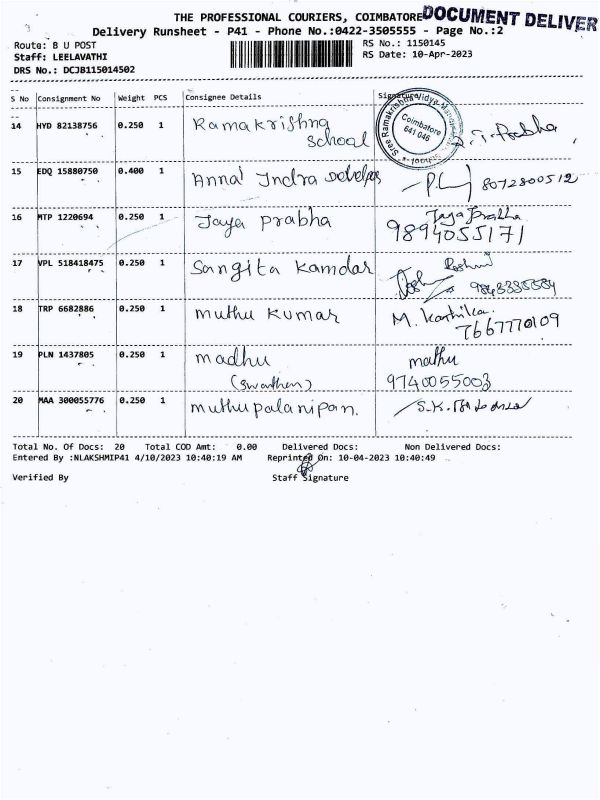 THE PROFESSIONAL COURIERS, COIMBATORE
DOCUMENT DELIVER
Delivery Runsheet - P41 - Phone No.:0422-3505555 - Page No.:2
Route: B U POST
RS No.: 1150145
Staff: LEELAVATHI
RS Date: 10-Apr-2023
DRS No.: DCJB115014502
S No Consignment No Weight PCS Consignee Details Signature
14 HYD 82138756 0.250 1 Ramakrishna School
Sree Ramakrishna Vidya School
Coimbatore
641 046
15 EDQ 15880750 0.400 1 Anna Indra 8072800512
16 MTP 1220694 0.250 1 Jaya prabha Jaya Prabha
9894055171
17 VPL 518418475 0.250 1 Sangita Kamdar
18 TRP 6682886 0.250 1 muthu kumar M. Karthika
7667770109
19 PLN 1437805 0.250 1 madhu mathu
(Swarthen) 9740055003
20 MAA 300055776 0.250 1 muthupalanipan.
Total No. Of Docs: 20 Total COD Amt: 0.00 Delivered Docs: Non Delivered Docs:
Entered By :NLAKSHMIP41 4/10/2023 10:40:19 AM Reprinted On: 10-04-2023 10:40:49
Verified By Staff Signature